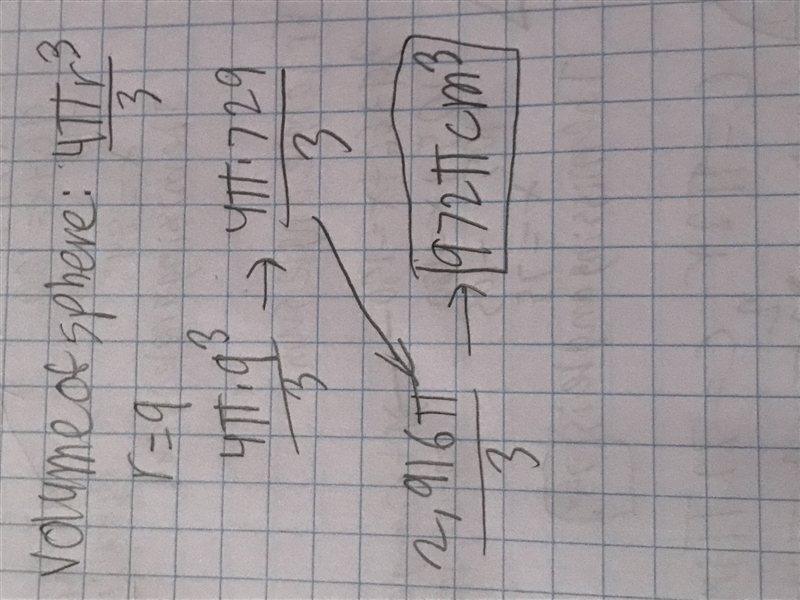 Volume of sphere: 4πr³/3
r=9
4π·9³/3 → 4π·729/3
2,916π/3 → 972πcm³